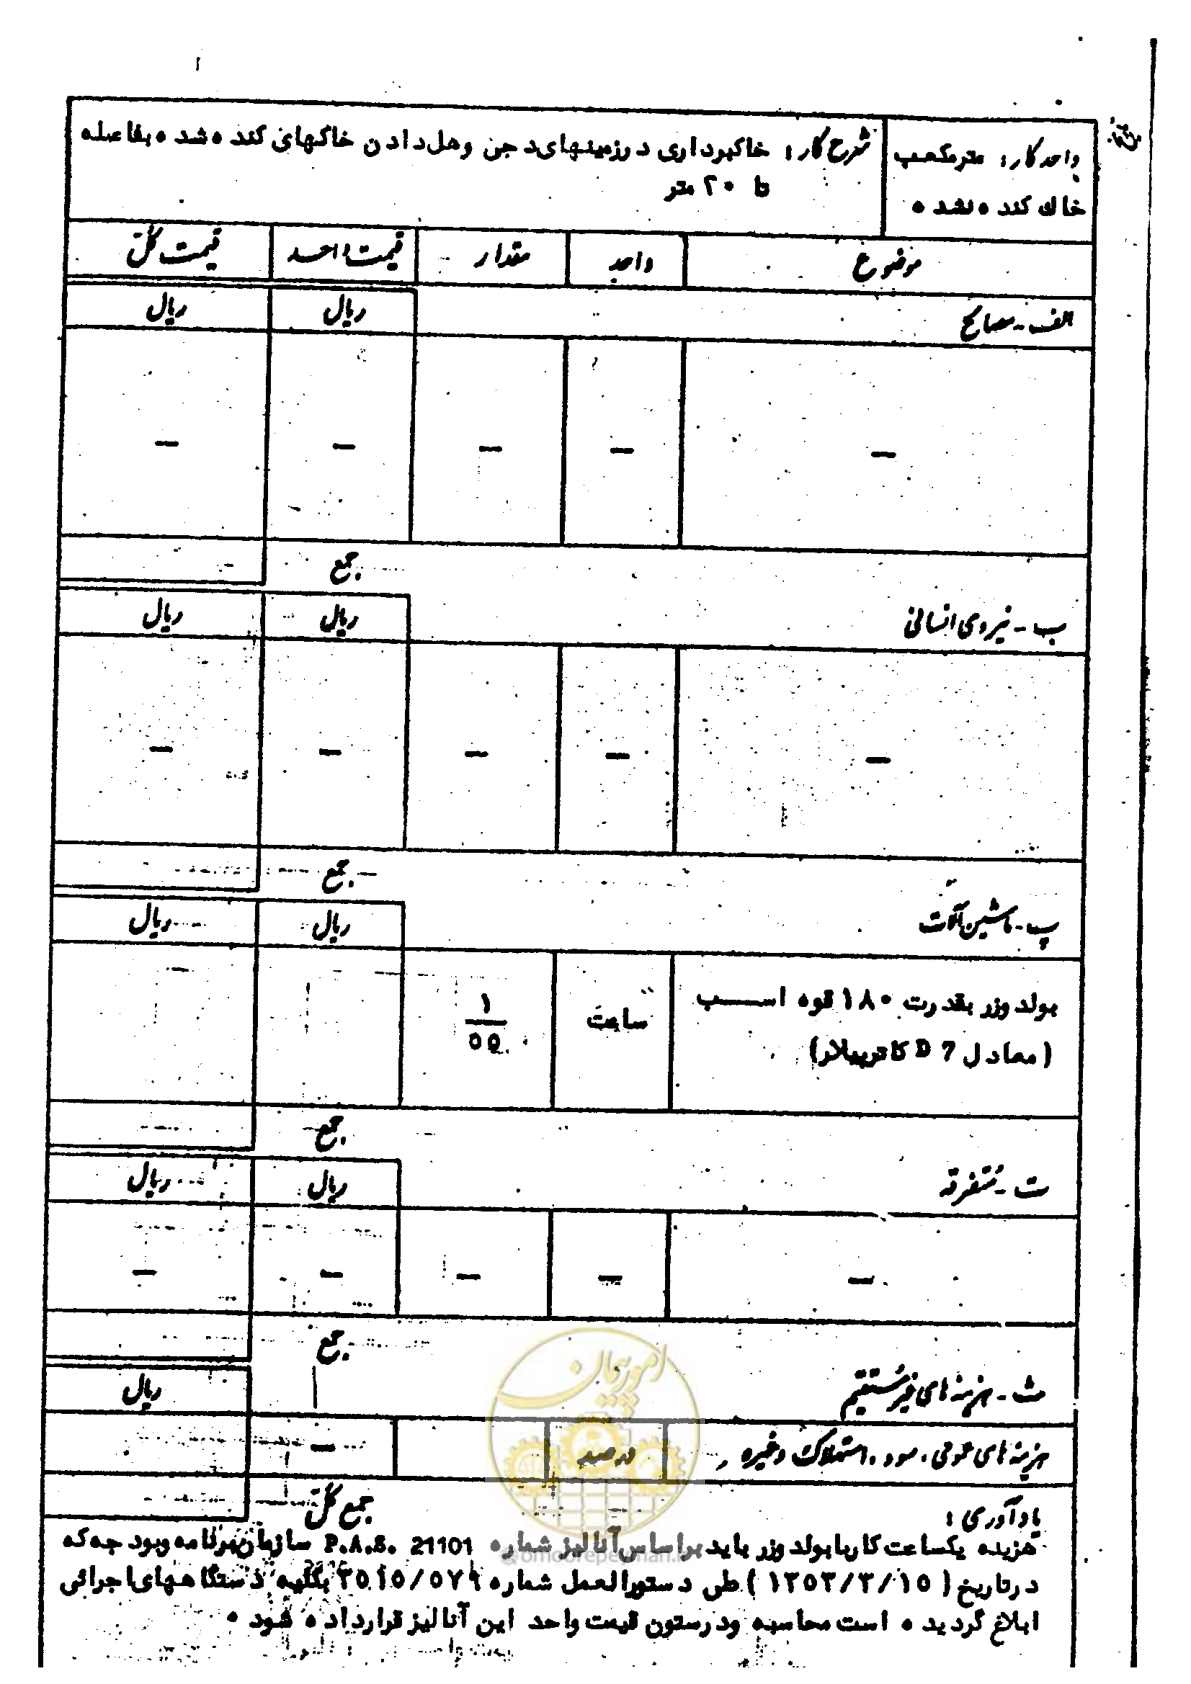 واحد کار: مترمکعب
خاك کنده نشده
شرح کار: خاکبرداری در زمینهای دجن و هل دادن خاکهای کنده شده بفاصله
تا ۲۰ متر
موضوع واحد مقدار قیمت واحد قیمت کل
الف - مصالح ریال ریال
— — — — —
جمع
ب - نیروی انسانی ریال ریال
— — — — —
جمع
پ - ماشین آلات ریال ریال
بولدوزر بقدرت ۱۸۰ قوه اسب ساعت ۱/۵۵
(معادل D 7 کاترپیلار)
جمع
ت - متفرقه ریال ریال
— — — — —
جمع
ث - هزینه های غیر مستقیم ریال
هزینه های عمومی، سود، استهلاک و غیره درصد —
جمع کل
یادآوری:
هزینه یکساعت کار با بولدوزر باید براساس آنالیز شماره P.A.S. 21101 سازمان برنامه و بودجه که
در تاریخ (۱۳۵۳/۳/۱۵) طی دستورالعمل شماره بکلیه دستگاههای اجرائی
ابلاغ گردیده است محاسبه و در ستون قیمت واحد این آنالیز قرارداده شود
امور پیمان
@omoorepeyman.ir